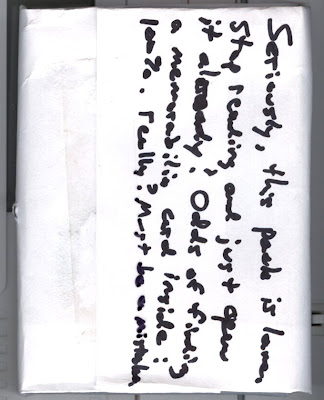 Seriously, this pack is lame.
Stop reading and just open
it already! Odds of finding
a memorabilia card inside:
100%. Really? Must be a mistake